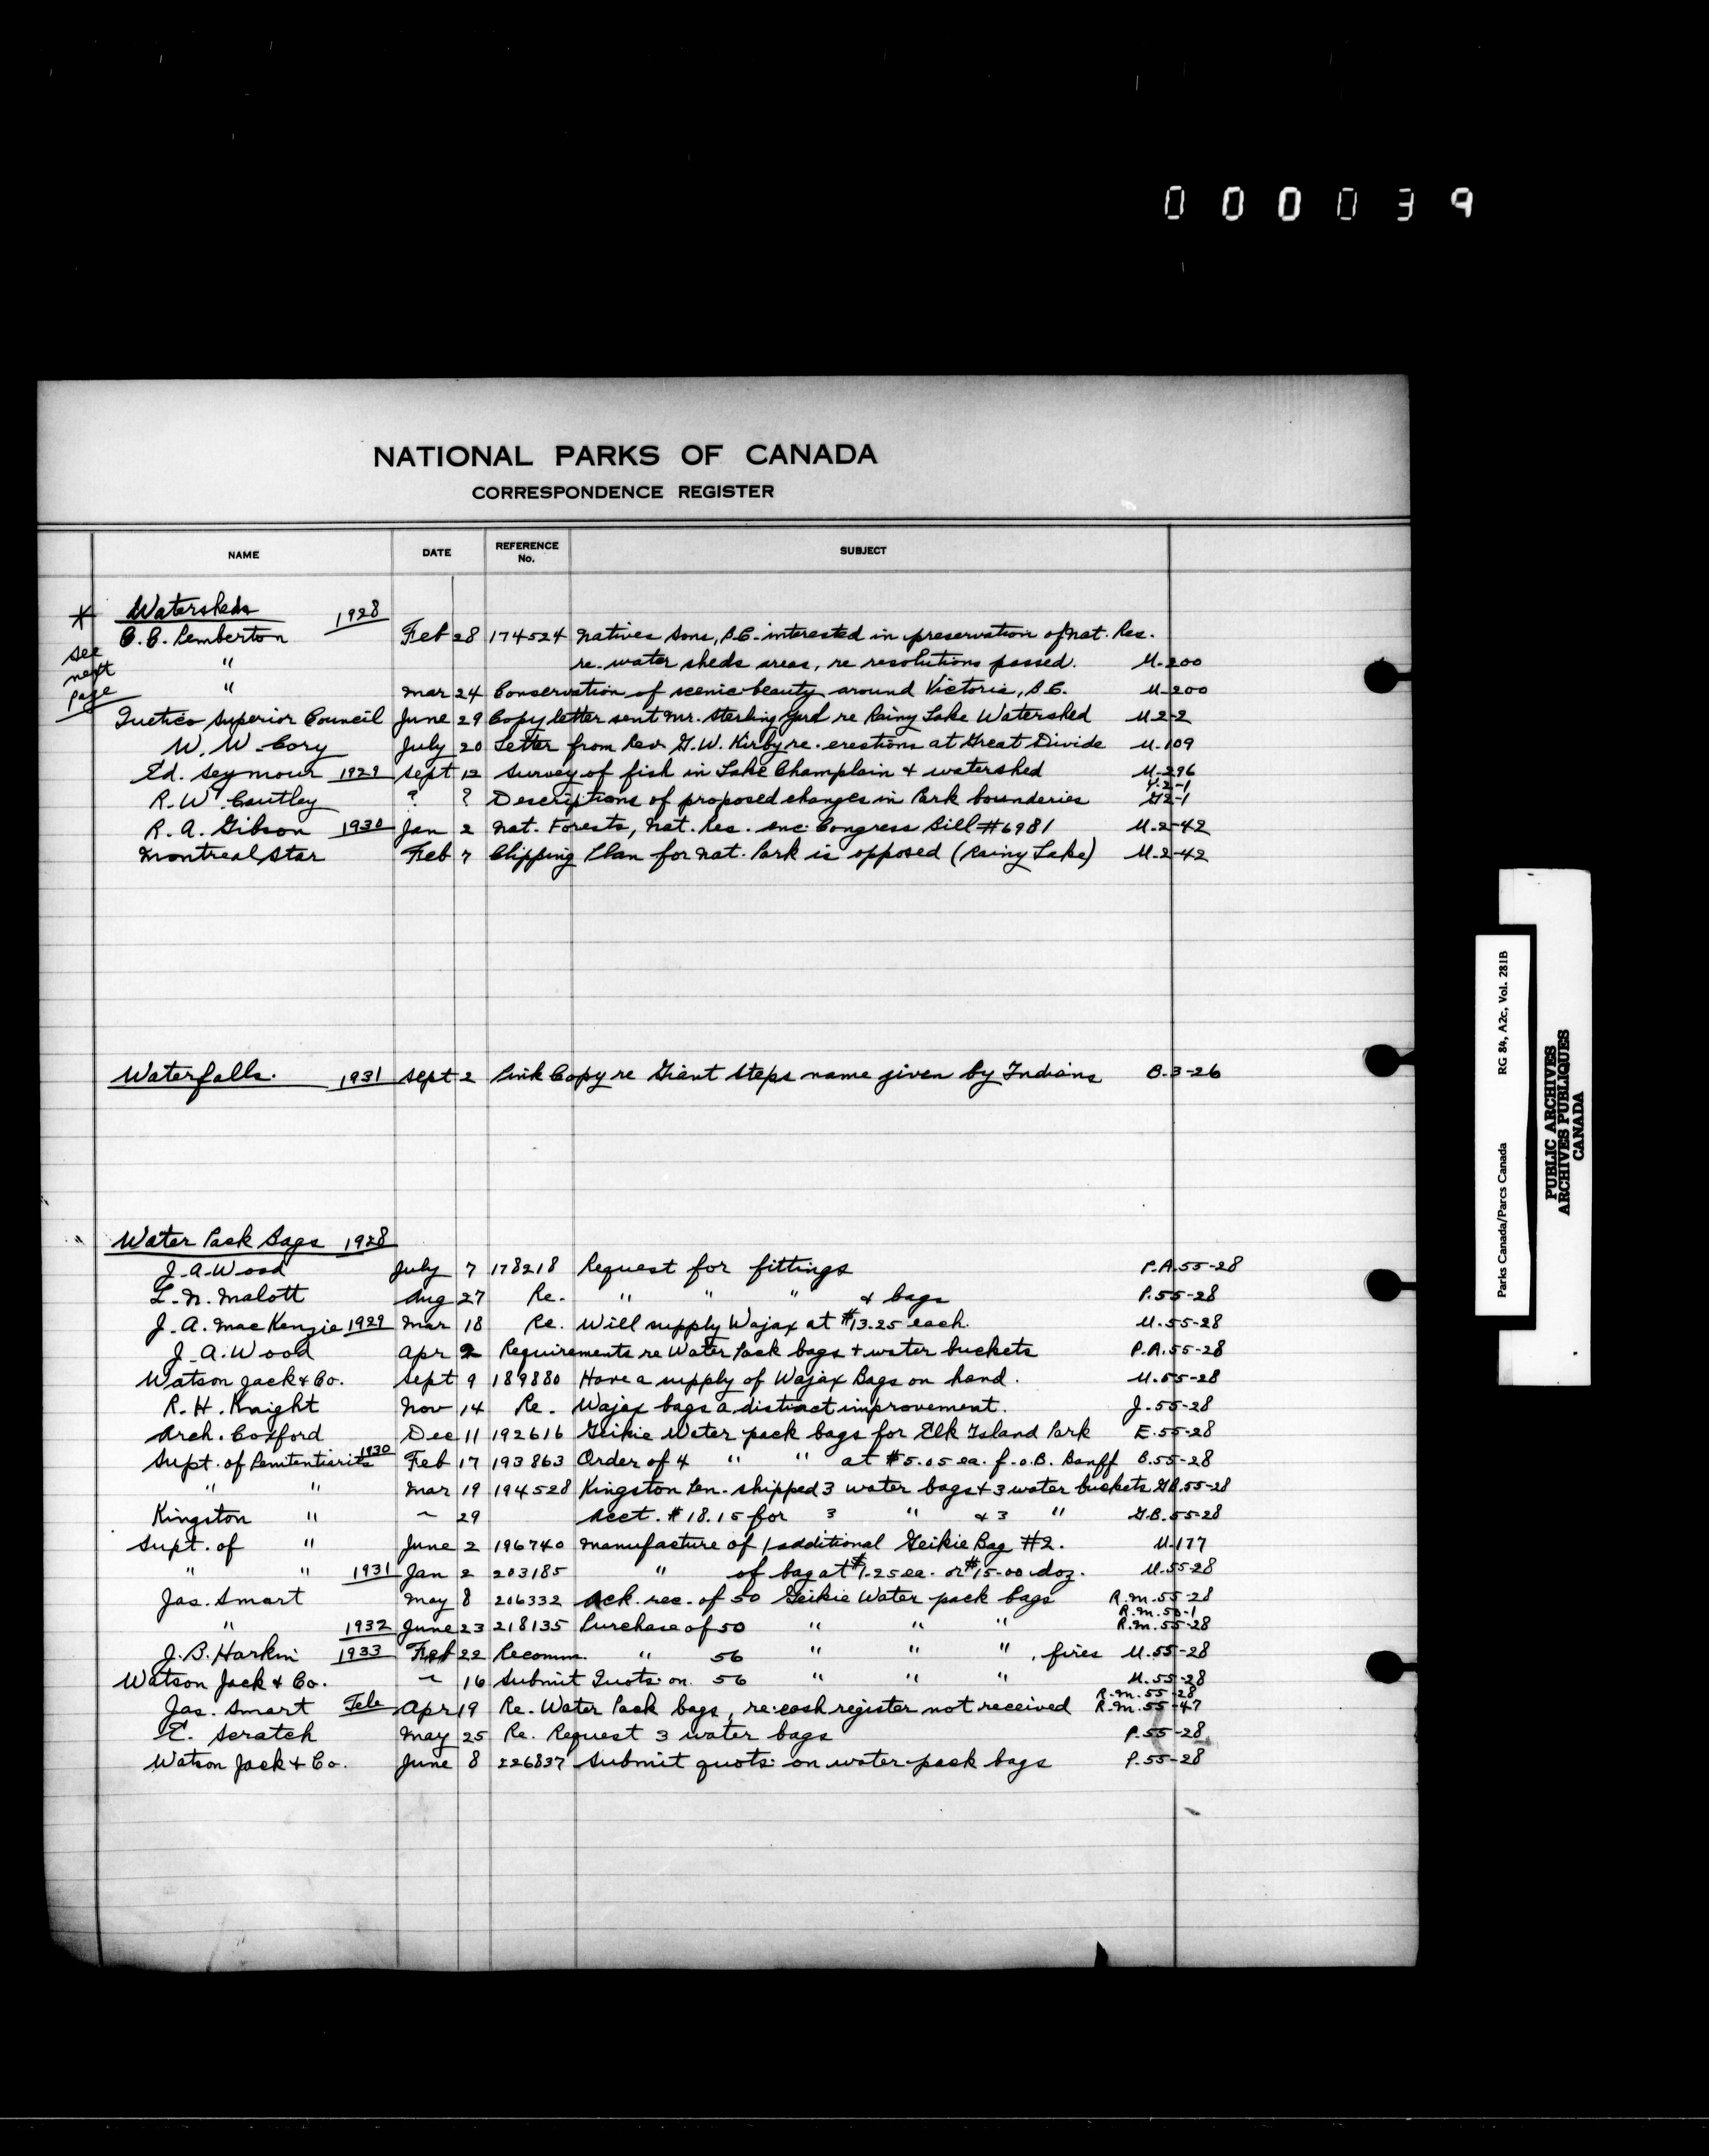 000039
NATIONAL PARKS OF CANADA
CORRESPONDENCE REGISTER
NAME DATE REFERENCE No. SUBJECT
* Watersheds 1928
see next page
C.C. Pemberton Feb 28 174524 Natives Sons, B.C. interested in preservation of Nat. Res.
" re. water sheds areas, re resolutions passed. U-200
" Mar 24 Conservation of scenic beauty around Victoria, B.C. U-200
Quetico Superior Council June 29 Copy letter sent Mr. Sterling Yard re Rainy Lake Watershed U.2-2
W. W. Cory July 20 Letter from Rev. G.W. Kirby re. erections at Great Divide U.109
Ed. Seymour 1929 Sept 12 Survey of fish in Lake Champlain & watershed U-296
R. W. Cautley ? ? Descriptions of proposed changes in Park bounderies Y.2-1 G2-1
R. A. Gibson 1930 Jan 2 Nat. Forests, Nat. Res. enc. Congress Bill #6981 U.2-42
Montreal Star Feb 7 Clipping Plan for Nat. Park is opposed (Rainy Lake) U.2-42
Waterfalls. 1931 Sept 2 Pink Copy re Giant Steps name given by Indians B.3-26
Water Pack Bags 1928
J.A. Wood July 7 178218 Request for fittings P.A.55-28
L.N. Malott Aug 27 Re. " " " & bags P.55-28
J.A. MacKenzie 1929 Mar 18 Re. Will supply Wajax at $13.25 each. U.55-28
J.A. Wood Apr 2 Requirements re Water Pack bags + water buckets P.A.55-28
Watson Jack & Co. Sept 9 189880 Have a supply of Wajax Bags on hand. U.55-28
R.H. Knight Nov 14 Re. Wajax bags a distinct improvement. J-55-28
Arch. Coxford Dec 11 192616 Geikie Water pack bags for Elk Island Park E.55-28
Supt. of Penitentiaries 1930 Feb 17 193863 Order of 4 " " at $5.05 ea. f.o.B. Banff B.55-28
" " Mar 19 194528 Kingston Pen. shipped 3 water bags & 3 water buckets G.B.55-28
Kingston " ~ 29 Acct. $18.15 for 3 " & 3 " G.B.55-28
Supt. of " June 2 196740 Manufacture of 1 additional Geikie Bag #2. U.177
" " 1931 Jan 2 203185 " of bag at $1.25 ea. or $15.00 doz. U.55-28
Jas. Smart May 8 206332 Ack. rec. of 50 Geikie Water pack bags R.M.55-28
R.M.50-1
" 1932 June 23 218135 Purchase of 50 " " " R.M.55-28
J.B. Harkin 1933 Feb 22 Recomm. " 56 " " " , fires U.55-28
Watson Jack & Co. ~ 16 Submit Quots: on 56 " " " U.55-28
R.M.55-28
Jas. Smart Feb Apr 19 Re. Water Pack bags, re: cash register not received R.M.55-47
E. Scratch May 25 Re. Request 3 water bags P.55-28
Watson Jack & Co. June 8 226837 Submit quots: on water pack bags P.55-28
Parks Canada/Parcs Canada RG 84, A2c, Vol. 281B
PUBLIC ARCHIVES
ARCHIVES PUBLIQUES
CANADA